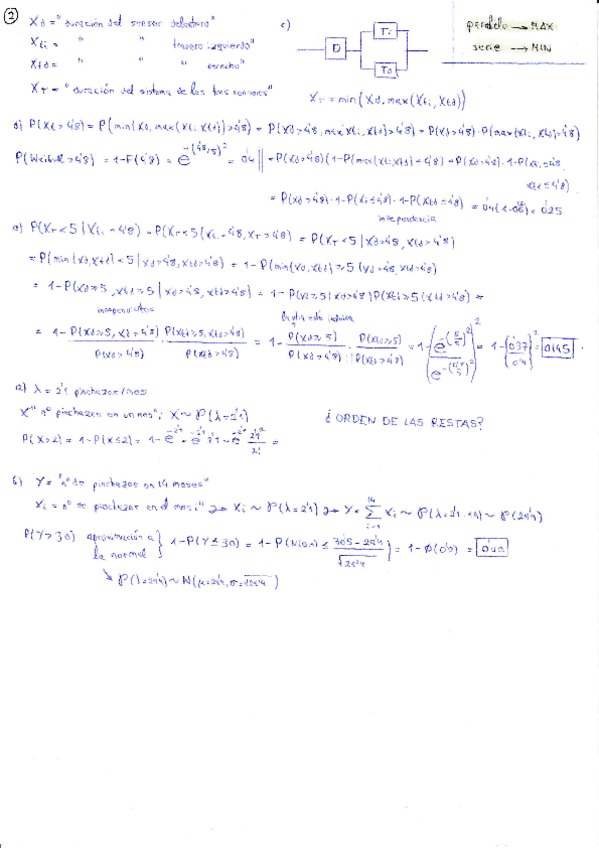 2
Xd = "duración del sensor delantero"
Xti = " " trasero izquierdo"
Xtd = " " " derecho"
XT = "duración del sistema de los tres sensores"
c)
D
Ti
Td
XT = min(Xd, max(Xti, Xtd))
paralelo → MAX
serie → MIN
d) P(XT > 4'8) = P(min(Xd, max(Xti, Xtd)) > 4'8) = P(Xd > 4'8, max(Xti, Xtd) > 4'8) = P(Xd > 4'8) · P(max(Xti, Xtd) > 4'8)
P(Weibull > 4'8) = 1 - F(4'8) = e^-(4'8/5)^2 = 0'4 || = P(Xd > 4'8)(1 - P(max(Xti, Xtd) ≤ 4'8)) = P(Xd > 4'8) · 1 - P(Xti ≤ 4'8,
Xtd ≤ 4'8)
= P(Xd > 4'8) · 1 - P(Xti ≤ 4'8) · 1 - P(Xtd ≤ 4'8) = 0'25
independencia
e) P(XT < 5 | Xti = 4'8, XT > 4'8) = P(XT < 5 | Xd > 4'8, Xtd > 4'8)
= P(min(Xd, Xtd) < 5 | Xd > 4'8, Xtd > 4'8) = 1 - P(min(Xd, Xtd) ≥ 5 | Xd > 4'8, Xtd > 4'8)
= 1 - P(Xd ≥ 5, Xtd ≥ 5 | Xd > 4'8, Xtd > 4'8) = 1 - P(Xd ≥ 5 | Xd > 4'8) P(Xtd ≥ 5 | Xtd > 4'8) =
independientes
= 1 - P(Xd ≥ 5, Xd > 4'8) / P(Xd > 4'8) · P(Xtd ≥ 5, Xtd > 4'8) / P(Xtd > 4'8) = 1 - P(Xd ≥ 5) / P(Xd > 4'8) · P(Xtd ≥ 5) / P(Xtd > 4'8) = 1 - (0'37 / 0'4)^2 = 0'145
a) λ = 2'1 pinchazos/mes
X "nº pinchazos en un mes"; X ~ P(λ = 2'1)
¿ORDEN DE LAS RESTAS?
P(X > 2) = 1 - P(X ≤ 2) = 1 - e^-2'1 - e^-2'1 2'1 - e^-2'1 2'1^2 / 2! =
b) Y = "nº de pinchazos en 14 meses"
Xi = nº de pinchazos en el mes i" → Xi ~ P(λ = 2'1) → Y = Σ Xi ~ P(λ = 2'1 · 14) ~ P(29'4)
P(Y > 30) aproximación a la normal } 1 - P(Y ≤ 30) = 1 - P(N(0,1) ≤ 30'5 - 29'4 / √29'4) = 1 - Φ(0'2) = 0'42
↘ P(λ = 29'4) ~ N(μ = 29'4, σ = √29'4)